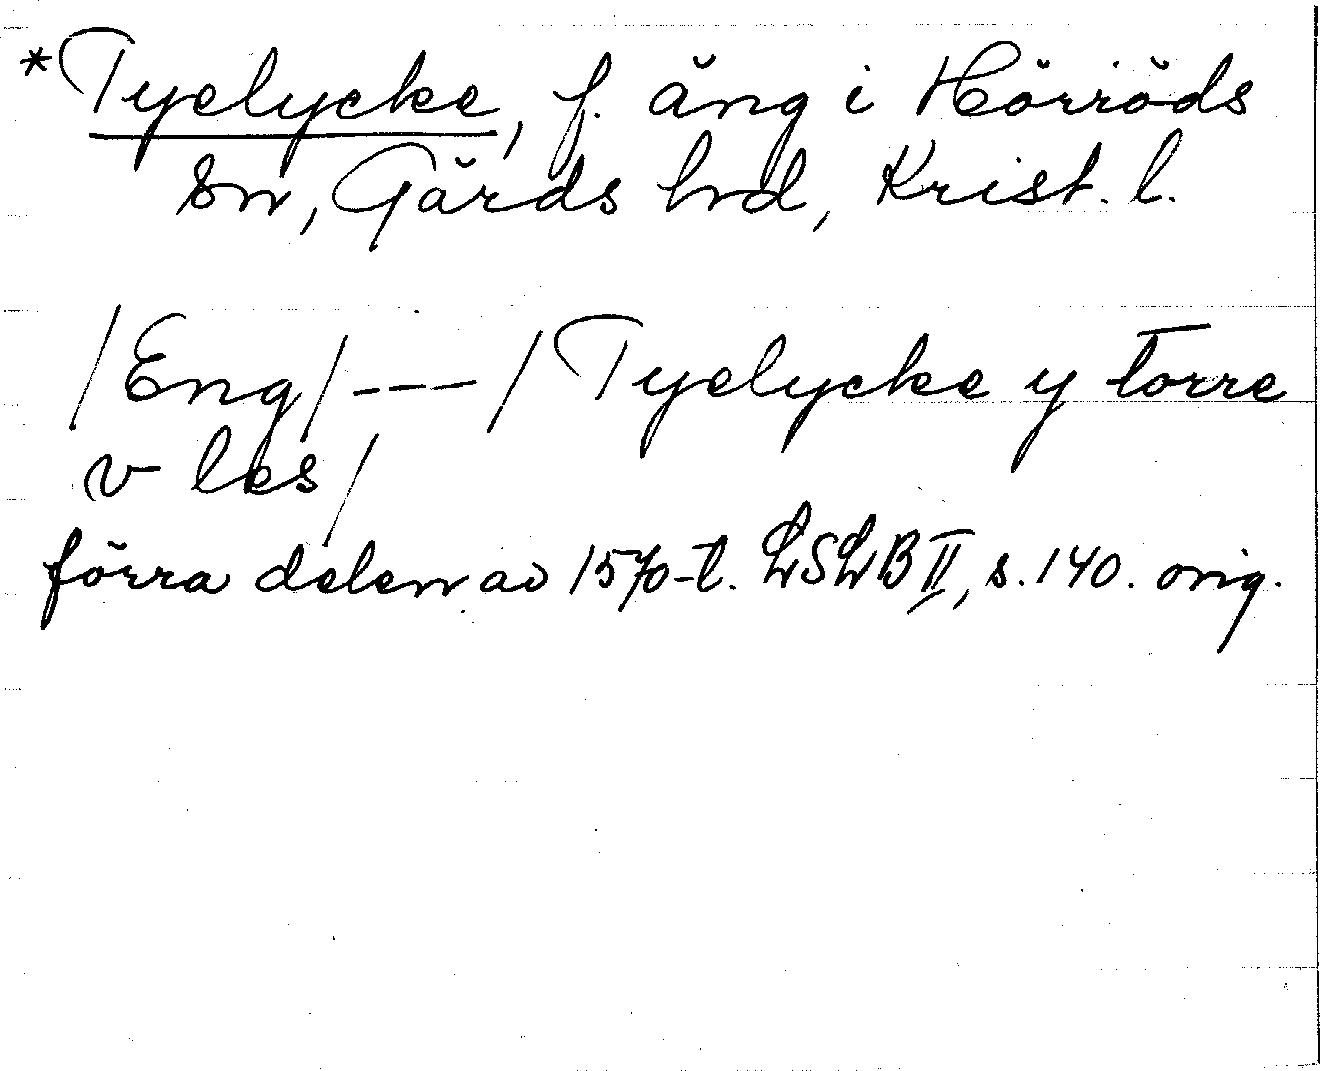 *Tyelycke, f. äng i Hörröds
sn, Gärds hd, Krist. l.
/Eng/---/Tyelycke y torre
v les/
förra delen av 1570-t. LSLB II, s. 140. orig.